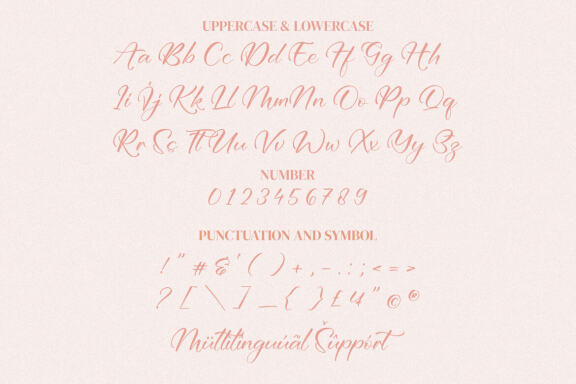 UPPERCASE & LOWERCASE
Aa Bb Cc Dd Ee Ff Gg Hh
Ii Jj Kk Ll Mm Nn Oo Pp Qq
Rr Ss Tt Uu Vv Ww Xx Yy Zz
NUMBER
0 1 2 3 4 5 6 7 8 9
PUNCTUATION AND SYMBOL
! " # & ' ( ) + , - . : ; < = >
? [ \ ] _ { } £ ¥ " © ®
Mültilingúúãl Šûppórt